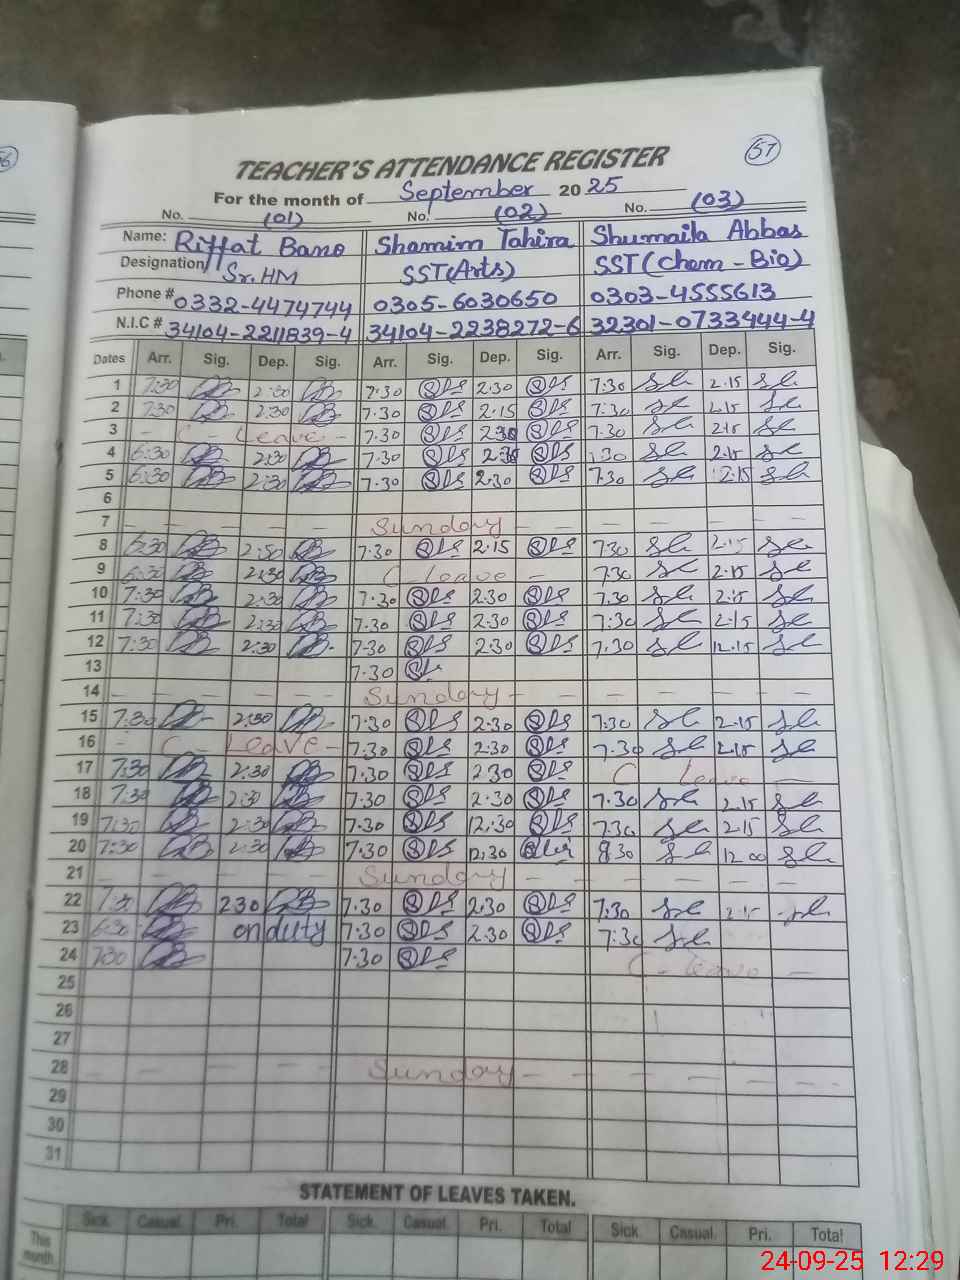 56
57
TEACHER'S ATTENDANCE REGISTER
For the month of September 2025
No. (01) No. (02) No. (03)
Name: Riffat Bano Shamim Tahira Shumaila Abbas
Designation Sr. HM SST(Arts) SST(Chem - Bio)
Phone # 0332-4474744 0305-6030650 0303-4555613
N.I.C # 34104-2211839-4 34104-2238272-6 32301-0733444-4
Dates Arr. Sig. Dep. Sig. Arr. Sig. Dep. Sig. Arr. Sig. Dep. Sig.
1 7:30 2:30 7.30 2.30 7.30 2.15
2 7:30 2:30 7.30 2.15 7:30 2.15
3 - C - Leave - 7.30 2.30 7.30 2.15
4 6:30 2:30 7.30 2.30 .30 2.15
5 6:30 2:30 7.30 2.30 7.30 2.15
6
7 Sunday
8 6:30 2:30 7.30 2.15 7.30 2.15
9 6:30 2:30 C - leave - 7.30 2.15
10 7:30 2:30 7.30 2.30 7.30 2.15
11 7:30 2:30 7.30 2.30 7:30 2.15
12 7:30 2:30 7.30 2.30 7.30 12.15
13 7.30
14 Sunday
15 7:30 2:30 7.30 2.30 7.30 2.15
16 - C - Leave - 7.30 2.30 7.30 2.15
17 7:30 2:30 7.30 2.30 C Leave -
18 7:30 2:30 7.30 2.30 7.30 2.15
19 7:30 2:30 7.30 12.30 7.30 2.15
20 7:30 2:30 7.30 12.30 8.30 12.00
21 Sunday
22 7:30 2 30 7.30 2.30 7.30 2.15
23 6:30 on duty 7.30 2.30 7:30
24 7:30 7.30 C - leave -
25
26
27
28 Sunday
29
30
31
STATEMENT OF LEAVES TAKEN.
Sick. Casual. Pri. Total Sick. Casual. Pri. Total Sick. Casual. Pri. Total
This month
24-09-25 12:29